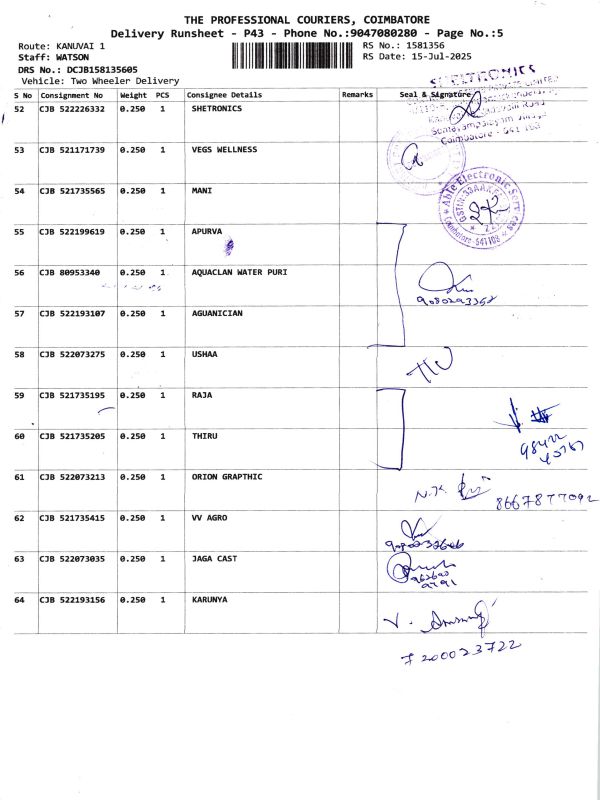 THE PROFESSIONAL COURIERS, COIMBATORE
Delivery Runsheet - P43 - Phone No.:9047080280 - Page No.:5
Route: KANUVAI 1
Staff: WATSON
DRS No.: DCJB158135605
Vehicle: Two Wheeler Delivery
RS No.: 1581356
RS Date: 15-Jul-2025
S No Consignment No Weight PCS Consignee Details Remarks Seal & Signature
52 CJB 522226332 0.250 1 SHETRONICS
Coimbatore - 541 108
53 CJB 521171739 0.250 1 VEGS WELLNESS
54 CJB 521735565 0.250 1 MANI
Able Electronic Services
Coimbatore-541108
55 CJB 522199619 0.250 1 APURVA
56 CJB 80953340 0.250 1 AQUACLAN WATER PURI
9080293368
57 CJB 522193107 0.250 1 AGUANICIAN
58 CJB 522073275 0.250 1 USHAA
59 CJB 521735195 0.250 1 RAJA
98422
60 CJB 521735205 0.250 1 THIRU
61 CJB 522073213 0.250 1 ORION GRAPTHIC
N.K.
8667877092
62 CJB 521735415 0.250 1 VV AGRO
63 CJB 522073035 0.250 1 JAGA CAST
64 CJB 522193156 0.250 1 KARUNYA
7200023722